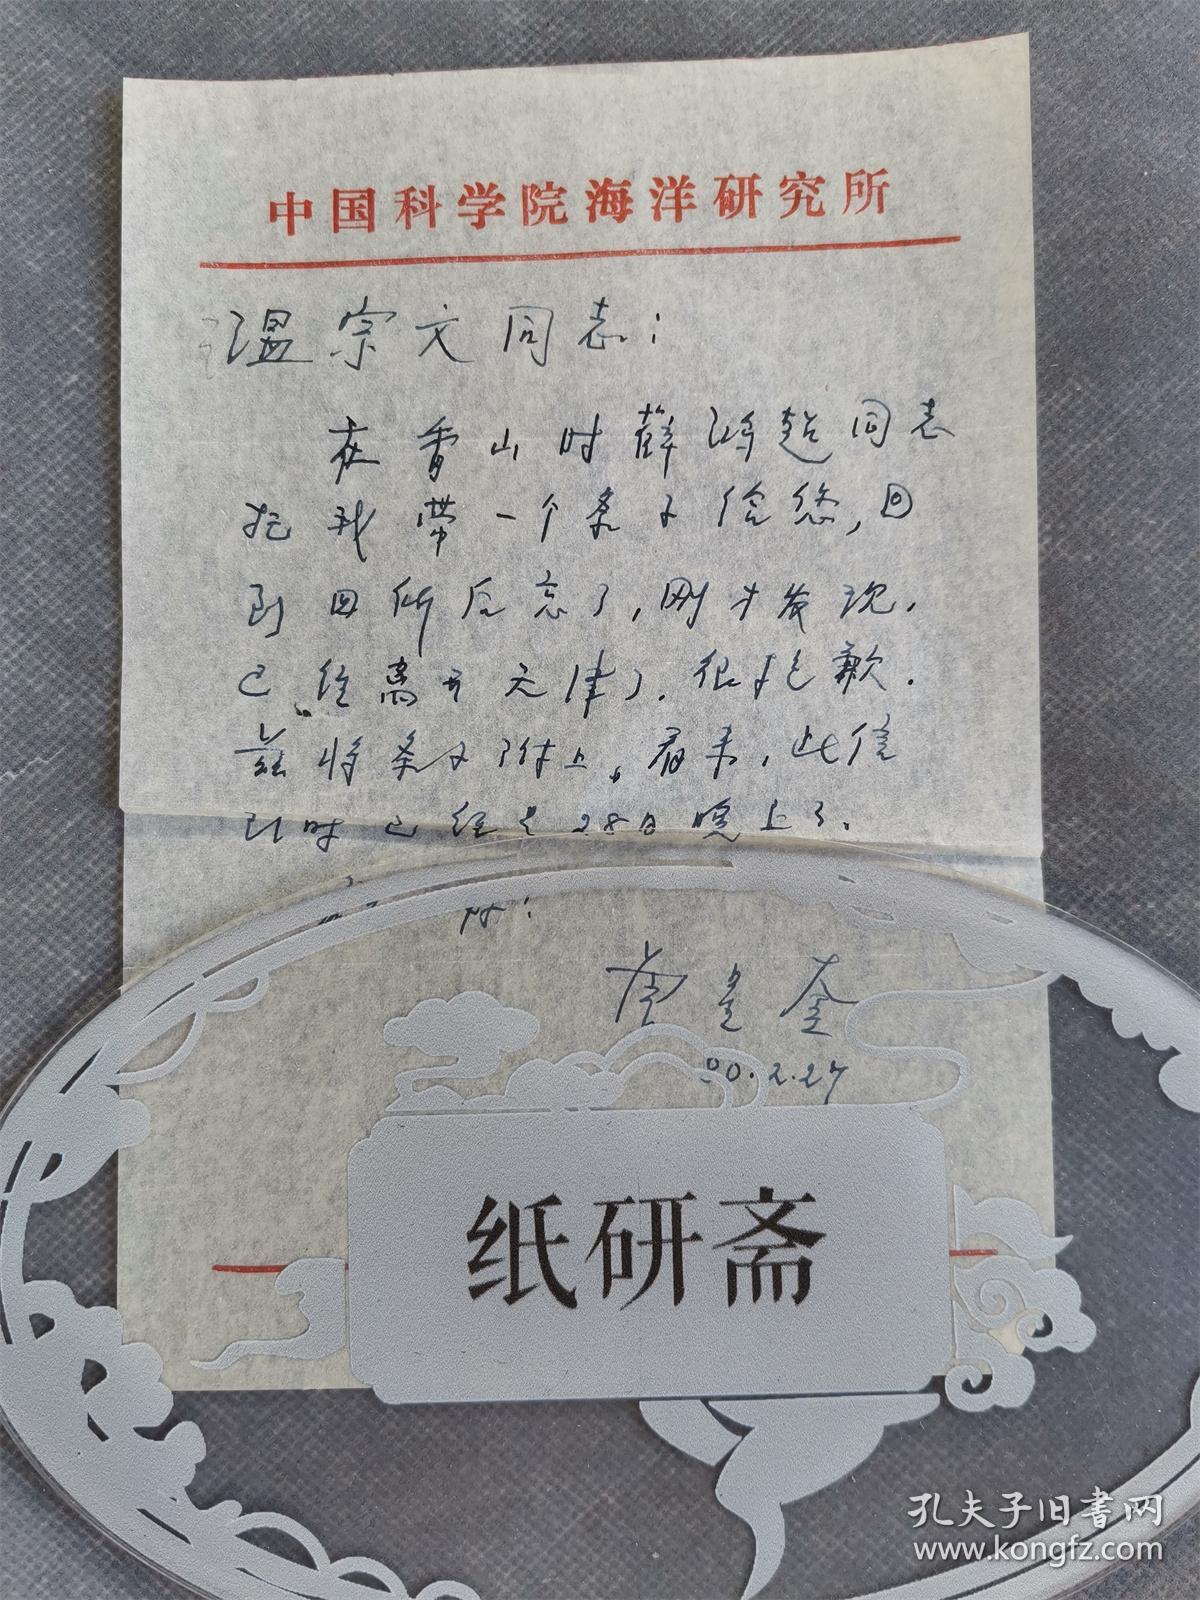 中国科学院海洋研究所
温宗文同志：
在香山时薛鸿超同志
托我带一个条子给您，回
到回所后忘了，刚才发现，
已经离开天津了．很抱歉．
兹将条子附上。看来，此信
到时已经是28日晚上了．
秦曾
80.2.27
纸研斋
孔夫子旧书网
www.kongfz.com